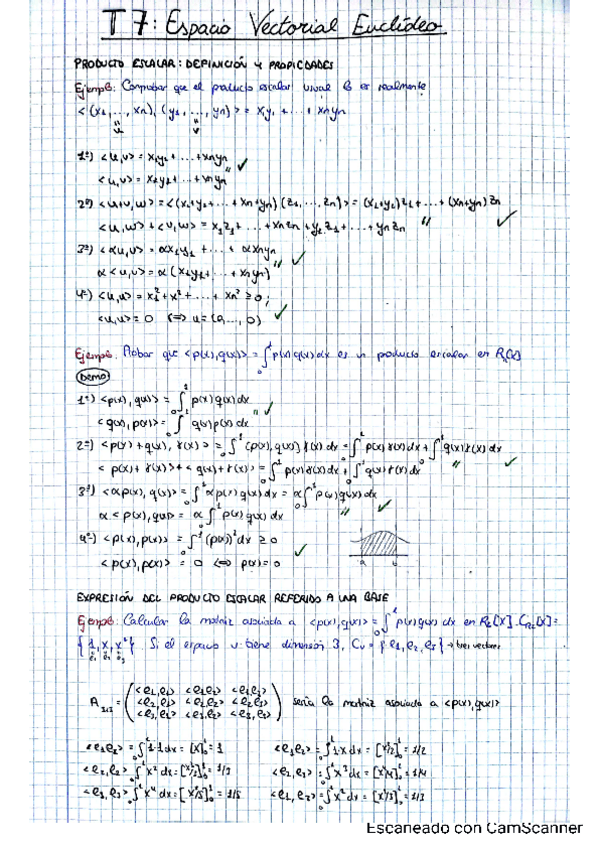 T7: Espacio Vectorial Euclídeo
PRODUCTO ESCALAR: DEFINICIÓN Y PROPIEDADES
Ejemplo: Comprobar que el producto escalar usual lo es realmente
<(x₁,..., xn), (y₁,..., yn)> = x₁y₁ + ... + xnyn
u v
1º) <u,v> = x₁y₁ + ... + xnyn
<u,v> = x₁y₁ + ... + xnyn " ✓
2º) <u+v,w> = <(x₁+y₁+...+xn+yn)(z₁,...,zn)> = (x₁+y₁)z₁+...+(xn+yn)zn
<u,w> + <v,w> = x₁z₁ + ... + xnzn + y₁z₁ + ... + ynzn " ✓
3º) <αu,v> = αx₁y₁ + ... + αxnyn
α<u,v> = α(x₁y₁+ ... + xnyn) " ✓
4º) <u,u> = x₁²+x²+ ... + xn² ≥ 0;
<u,u> = 0 ⇔ u = (0,...,0) ✓
Ejemplo: Probar que <p(x),q(x)> = ∫₀¹ p(x)q(x)dx es un producto escalar en R₂(x)
Demo
1º) <p(x), q(x)> = ∫₀¹ p(x)q(x)dx
<q(x), p(x)> = ∫₀¹ q(x)p(x)dx " ✓
2º) <p(x)+q(x), r(x)> = ∫₀¹ (p(x),q(x)) r(x) dx = ∫₀¹ p(x)r(x)dx + ∫₀¹ q(x)r(x) dx
<p(x)+r(x)> + <q(x)+r(x)> = ∫₀¹ p(x)r(x)dx + ∫₀¹ q(x)r(x)dx " ✓
3º) <αp(x), q(x)> = ∫₀¹ αp(x)q(x)dx = α∫₀¹ p(x)q(x)dx
α<p(x),q(x)> = α∫₀¹ p(x)q(x)dx " ✓
4º) <p(x),p(x)> = ∫₀¹ (p(x))²dx ≥ 0
<p(x),p(x)> = 0 ⇔ p(x)=0 ✓
a b
EXPRESIÓN DEL PRODUCTO ESCALAR REFERIDO A UNA BASE
Ejemplo: Calcular la matriz asociada a <p(x),q(x)> = ∫₀¹ p(x)q(x) dx en R₂[X]. C_R₂[X] =
{1, x, x²}. Si el espacio v. tiene dimensión 3, Cv = {e₁,e₂,e₃} → tres vectores
e₁ e₂ e₃
<e₁,e₁> <e₁e₂> <e₁e₃>
A₃ₓ₃ = <e₂,e₁> <e₂e₂> <e₂e₃> sería la matriz asociada a <p(x),q(x)>
<e₃,e₁> <e₃,e₂> <e₃,e₃>
<e₁e₁> = ∫₀¹ 1·1dx = [x]₀¹ = 1 <e₁e₂> = ∫₀¹ 1·x dx = [x²/2]₀¹ = 1/2
<e₂,e₂> = ∫₀¹ x² dx = [x³/3]₀¹ = 1/3 <e₂,e₃> = ∫₀¹ x³ dx = [x⁴/4]₀¹ = 1/4
<e₃,e₃> = ∫₀¹ x⁴ dx = [x⁵/5]₀¹ = 1/5 <e₁,e₃> = ∫₀¹ x² dx = [x³/3]₀¹ = 1/3
Escaneado con CamScanner